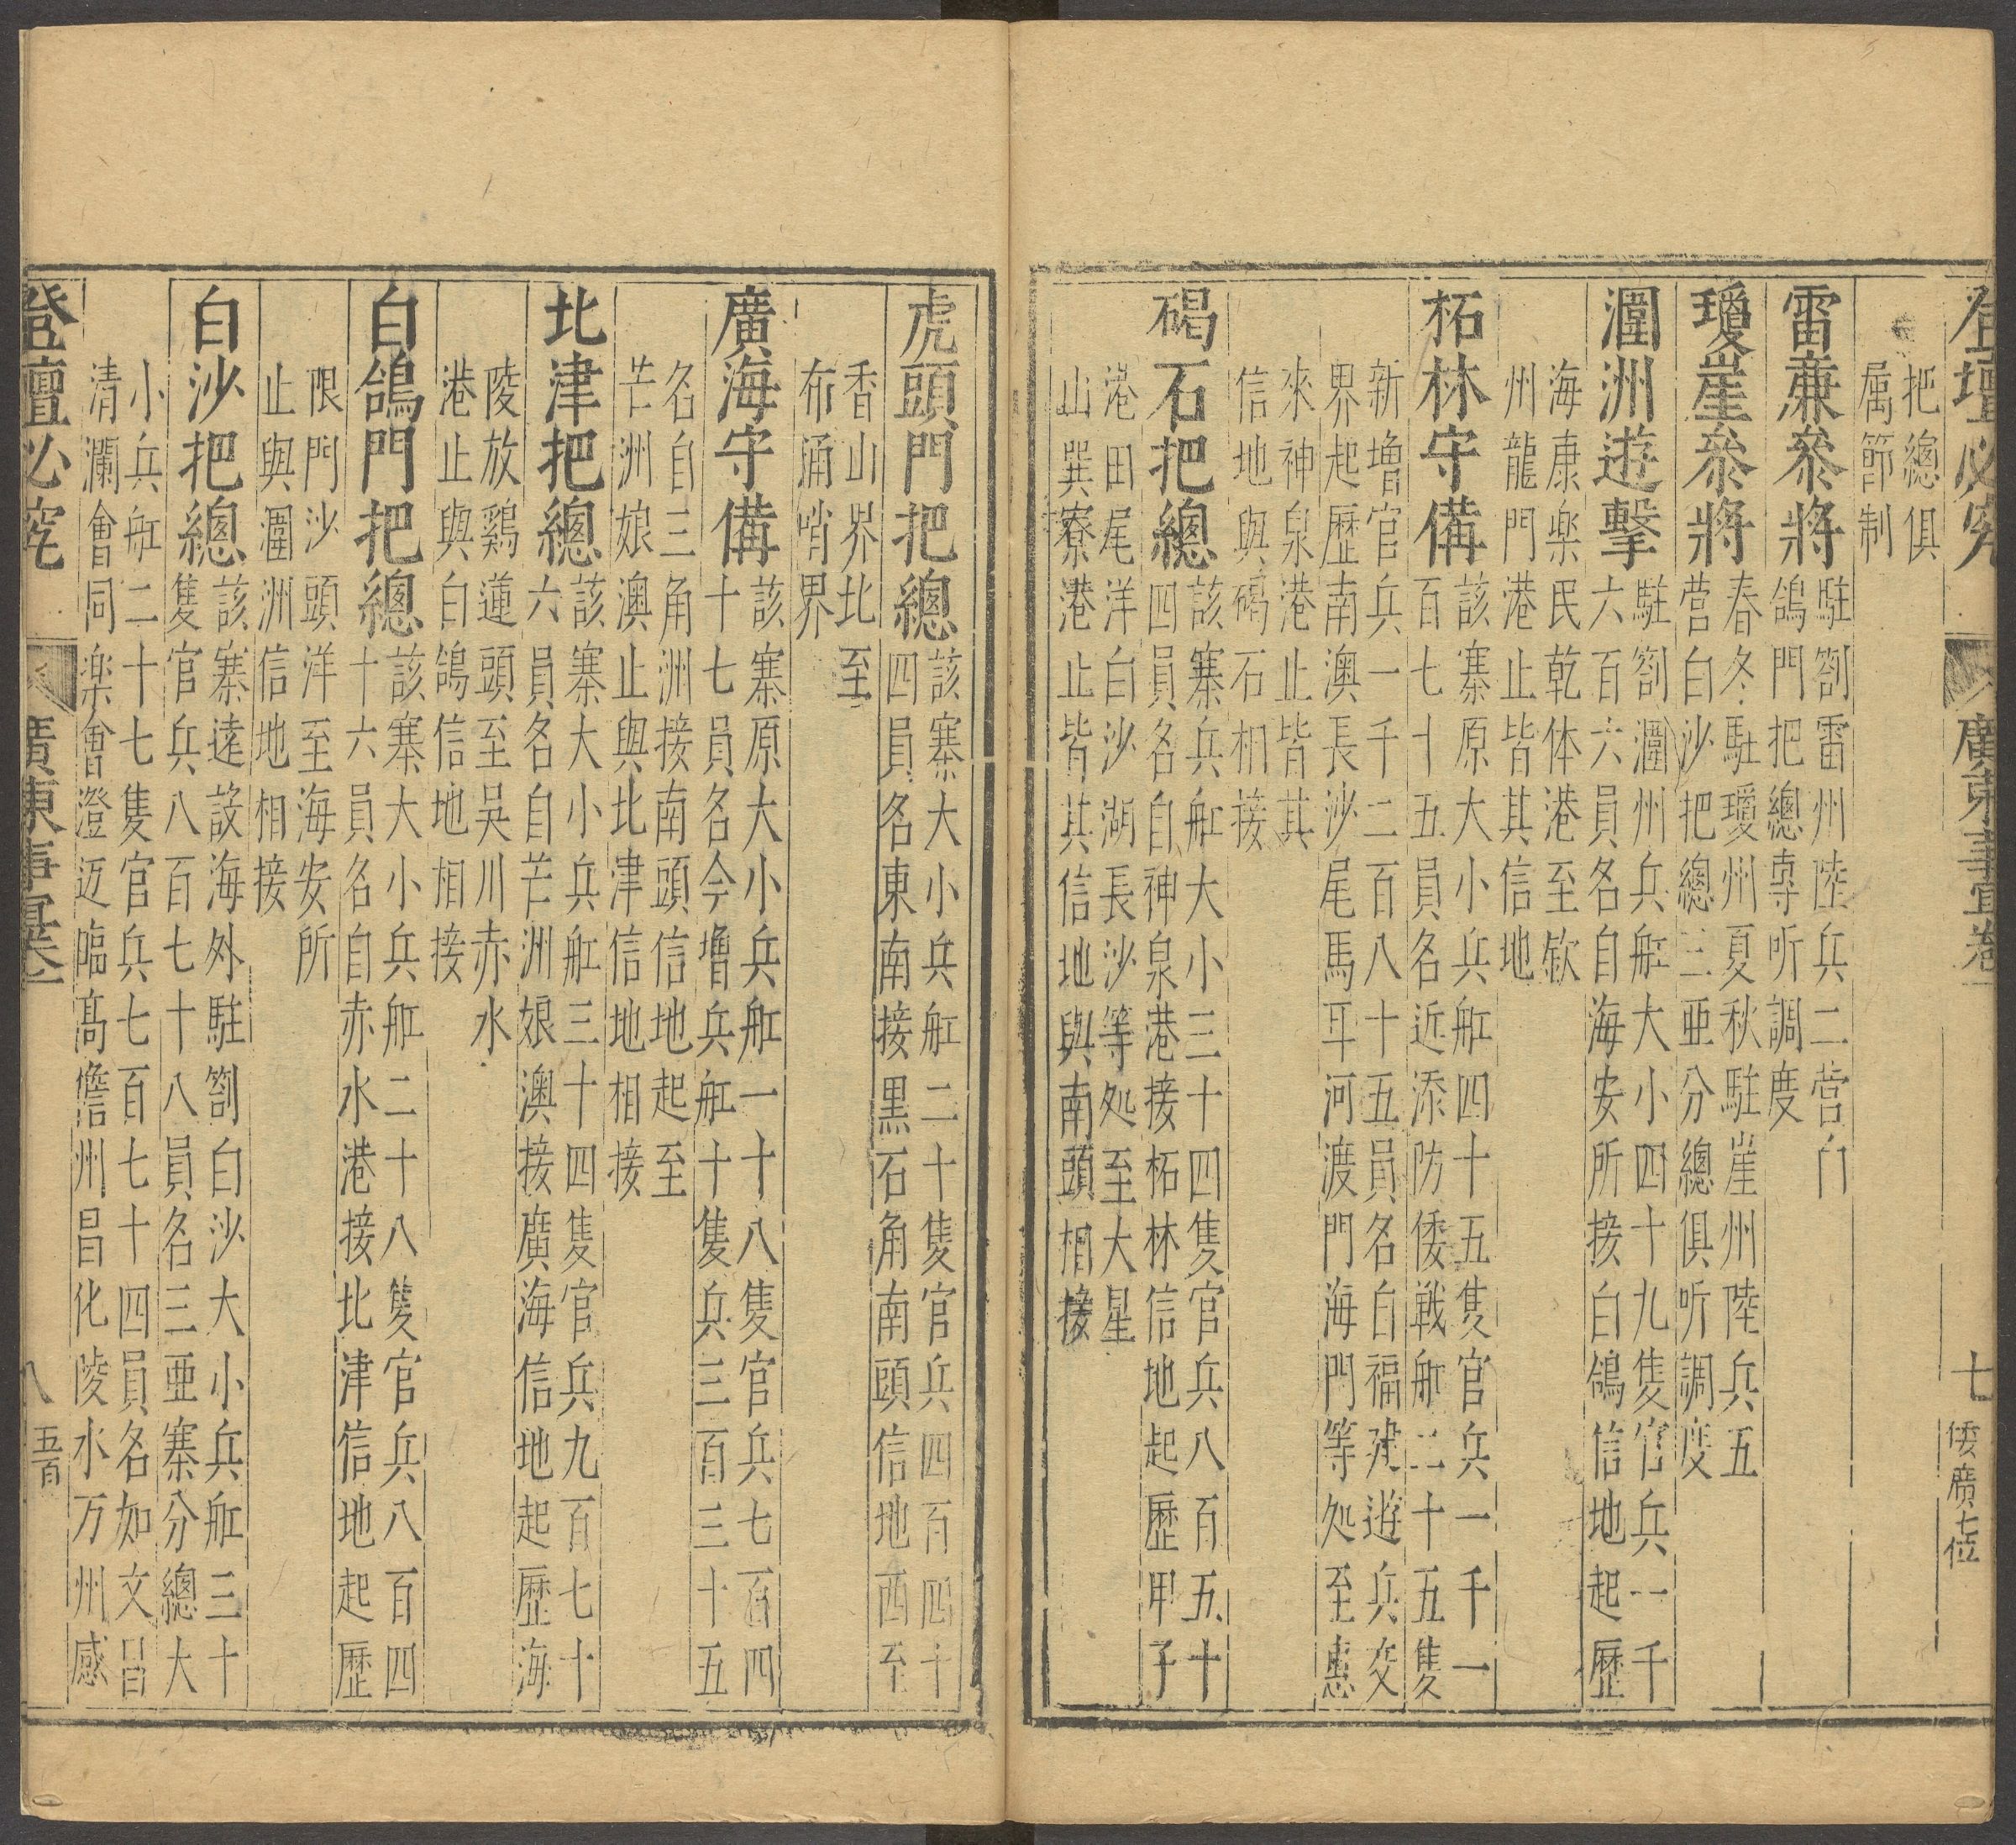 登壇必究 廣東事宜卷一 七 倭廣七位
把總俱
属節制
雷亷叅將
駐劄雷州陸兵二营白
鴿門把總專听調度
瓊崖叅將
春冬駐瓊州夏秋駐崖州陸兵五
营白沙把總三亜分總俱听調度
潿洲遊擊
駐劄潿州兵舡大小四十九隻官兵一千
六百六員名自海安所接白鴿信地起歷
海康楽民乾体港至欽
州龍門港止皆其信地
柘林守備
該寨原大小兵舡四十五隻官兵一千一
百七十五員名近添防倭戦舡二十五隻
新增官兵一千二百八十五員名自福建遊兵交
界起歷南澳長沙尾馬耳河渡門海門等处至惠
來神泉港止皆其
信地與碣石相接
碣石把總
該寨兵舡大小三十四隻官兵八百五十
四員名自神泉港接柘林信地起歷甲子
港田尾洋白沙湖長沙等处至大星
山巽寮港止皆其信地與南頭相接
虎頭門把總
該寨大小兵舡二十隻官兵四百四十
四員名東南接黒石角南頭信地西至
香山界北至
布涌哨界
廣海守備
該寨原大小兵舡一十八隻官兵七百四
十七員名今增兵舡十隻兵三百三十五
名自三角洲接南頭信地起至
芒洲娘澳止與北津信地相接
北津把總
該寨大小兵舡三十四隻官兵九百七十
六員名自芒洲娘澳接廣海信地起歷海
陵放鷄蓮頭至吴川赤水
港止與白鴿信地相接
白鴿門把總
該寨大小兵舡二十八隻官兵八百四
十六員名自赤水港接北津信地起歷
限門沙頭洋至海安所
止與潿洲信地相接
白沙把總
該寨遠設海外駐劄白沙大小兵舡三十
隻官兵八百七十八員名三亜寨分總大
小兵舡二十七隻官兵七百七十四員名如文昌
清瀾會同楽會澄迈臨髙儋州昌化陵水万州感
登壇必究 廣東事宜卷一 八 五百